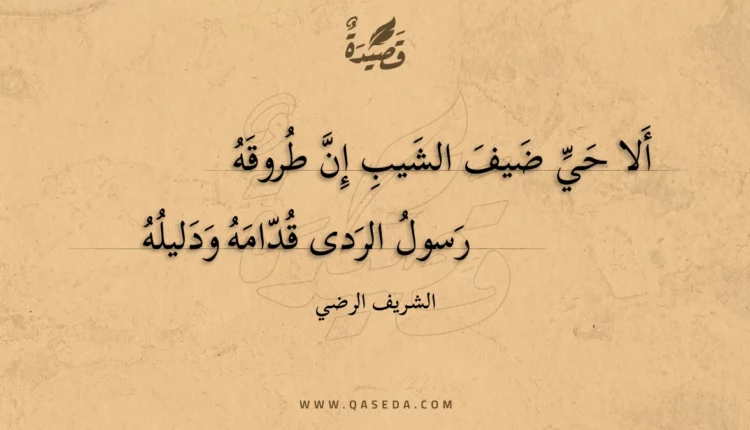 قَصِيْدَةٌ
أَلا حَيِّ ضَيفَ الشَيبِ إِنَّ طُروقَهُ
رَسولُ الرَدى قُدّامَهُ وَدَليلُهُ
الشريف الرضي
WWW.QASEDA.COM